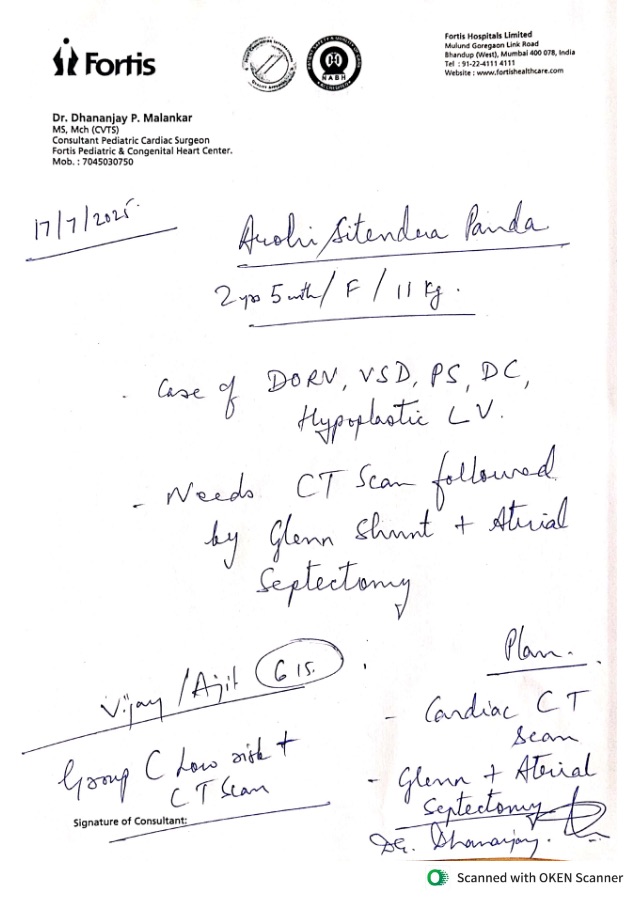 Fortis
NABH
Fortis Hospitals Limited
Mulund Goregaon Link Road
Bhandup (West), Mumbai 400 078, India
Tel : 91-22-4111 4111
Website : www.fortishealthcare.com
Dr. Dhananjay P. Malankar
MS, Mch (CVTS)
Consultant Pediatric Cardiac Surgeon
Fortis Pediatric & Congenital Heart Center.
Mob. : 7045030750
17/7/2025
Arohi Sitendera Panda
2 yrs 5 mth / F / 11 kg.
- Case of DORV, VSD, PS, DC,
Hypoplastic LV.
- Needs CT Scan followed
by Glenn Shunt + Aterial
Septectomy
Vijay / Ajit
Group C Low risk +
CT Scan
Plan.
- Cardiac CT
Scan
- Glenn + Aterial
Septectomy
Dr. Dhananjay.
Signature of Consultant:
Scanned with OKEN Scanner